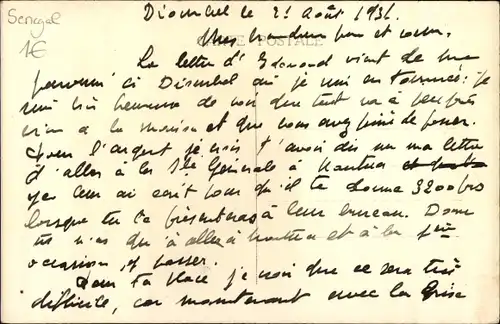 Senegal
1€
Diourbel le 21 Août 1931.
CARTE POSTALE
Mes
La lettre d'Edouard vient de me
parvenir ici Diourbel où je suis en tournée : je
suis très heureux de voir que tout va à peu près
bien à la maison et que vous avez fini de faner.
Pour l'argent je crois t'avoir dit sur ma lettre
d'aller à la Sté Générale à Nantua
leur ai écrit pour qu'il te donne 3200 frs
lorsque tu te présenteras à leur bureau. Donc
tu n'as qu'à aller à Nantua et à la 1ère
occasion passer.
Pour ta place je crois que ce sera très
difficile, car maintenant avec la crise